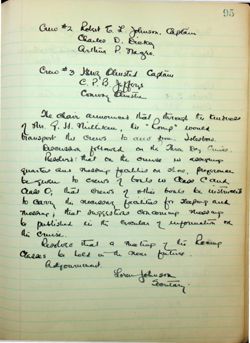 95
Crew #2 Robert E. L. Johnson, Captain
Charles D.
Arthur P.
Crew #3 Olmsted Captain
C. P. B. Jefferys
Conway Olmsted
The chair announced that through the kindness
of Mr. G. H. Milliken, his Company would
transport the crews to and from
Discussion followed on the Three Day Cruise.
Resolved that on the cruise in assigning
quarters and messing facilities on shore, preference
be given to crews of boats in Class C and
Class O, that crews of other boats be instructed
to carry the necessary facilities for sleeping and
messing, that suggestions concerning messing
be published in the circular of information on
the cruise.
Resolved that a meeting of the Racing
Classes be held in the near future.
Adjournment.
Johnson
Secretary.